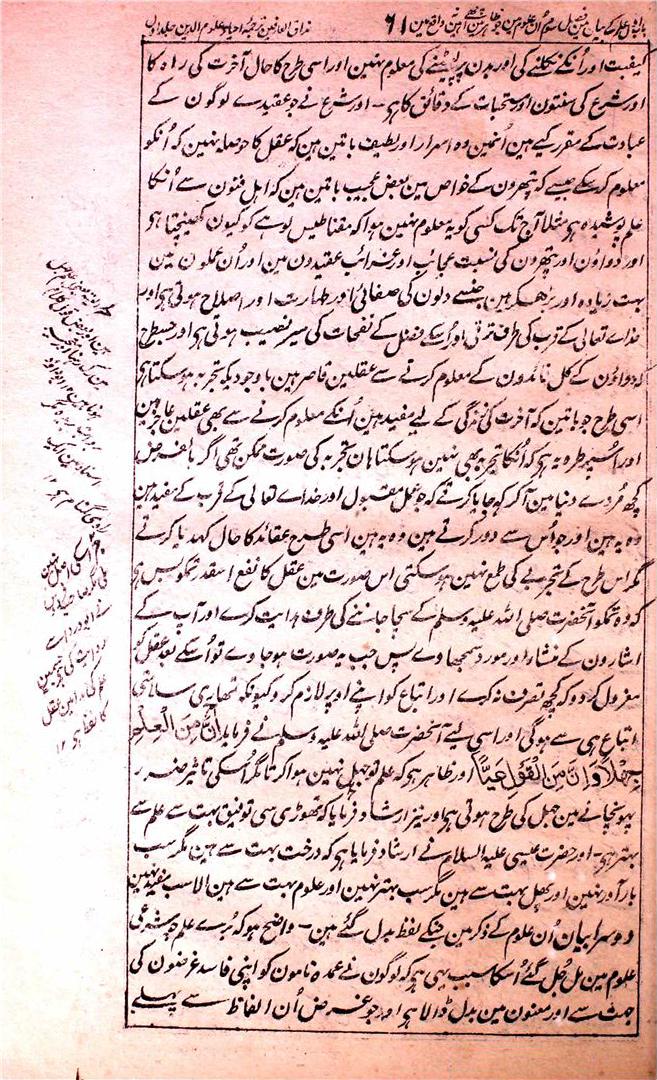 مذاق العارفین ترجمہ احیاء علوم الدین جلد اول
۶۱
باب اول علم کے بیان مین فصل سوم اُن علوم مین جو ظاہر مین اچھے ہین نہ واقع مین
کیفیت اور اُنکے نکلنے کی اور بدن پر لپٹنے کی معلوم نہین اور اسی طرح کا حال آخرت کی راہ کا
اور شرع کی سنتون اور مستحبات کے دقائق کا ہو۔ اور شرع نے جو عقیدے لوگون کے
عبادت کے مقرر کیے ہین اُنمین وہ اسرار اور لطیف باتین ہین کہ عقل کا حوصلہ نہین کہ اُنکو
معلوم کرسکے جیسے کہ پتھرون کے خواص مین بعض عجیب باتین ہین کہ اہل فنون سے اُنکا
علم پوشیدہ ہو مثلاً آج تک کسی کو یہ معلوم نہین ہوا کہ مقناطیس لوہے کو کیون کھینچتا ہو
اور دواؤن اور پتھرون کی نسبت عجائب اور غرائب عقیدون مین اور اُن عملون مین
بہت زیادہ اور بڑھکر ہین جنسے دلون کی صفائی اور طہارت اور اصلاح ہوتی ہو اور
خداے تعالی کے قرب کی طرف ترقی اور اُسکے فضل کے نفحات کی سیر نصیب ہوتی ہو اور جسطرح
کہ دواؤن کے کل فائدون کے معلوم کرنے سے عقلین قاصر ہین باوجودیکہ تجربہ ہوسکتا ہو
اسی طرح جو باتین کہ آخرت کی زندگی کے لیے مفید ہین اُنکے معلوم کرنے سے بھی عقلین عاجز ہین
اور اُسپر طرہ یہ ہو کہ اُنکا تجربہ بھی نہین ہوسکتا ہان تجربہ کی صورت ممکن تھی اگر بالفرض
کچھ مُردے دنیا مین آکر کہہ جایا کرتے کہ جو عمل مقبول اور خداے تعالی کے قرب کے مفید ہین
وہ یہ ہین اور جو اُس سے دور کرتے ہین وہ یہ ہین اسی طرح عقائد کا حال کہدیا کرتے
مگر اس طرح کے تجربے کی طمع نہین ہوسکتی اس صورت مین عقل کا نفع اسقدر تمکو بس ہو
کہ وہ تمکو آنحضرت صلی اللہ علیہ وسلم کے سچا جاننے کی طرف ہدایت کرے اور آپ کے
اشارون کے منشا اور مورد سمجھاوے پس جب یہ صورت ہوجاوے تو اُسکے بعد عقل کو
معزول کردو کہ کچھ تصرف نہ کرے اور اتباع کو اپنے اوپر لازم کرو کیونکہ تمھاری سلامتی
اتباع ہی سے ہوگی اور اسی لیے آنحضرت صلی اللہ علیہ وسلم نے فرمایا اِنَّ مِنَ الْعِلْمِ
جَھْلًا وَاِنَّ مِنَ الْقَوْلِ عَیًّا اور ظاہر ہو کہ علم تو جہل نہین ہوا کرتا مگر اُسکی تاثیر ضرر
پہونچانے مین جہل کی طرح ہوتی ہو اور نیز ارشاد فرمایا کہ تھوڑی سی توفیق بہت سے علم سے
بہتر ہو۔ اور حضرت عیسی علیہ السلام نے ارشاد فرمایا ہو کہ درخت بہت سے ہین مگر سب
بارآور نہین اور پھل بہت سے ہین مگر سب بہتر نہین اور علوم بہت سے ہین الا سب مفید نہین
دوسرا بیان اُن علوم کے ذکر مین جنکے لفظ بدل گئے ہین۔ واضح ہو کہ بُرے علم جو شرعی
علوم مین مل جُل گئے اُسکا سبب یہی ہو کہ لوگون نے عمدہ نامون کو اپنی فاسد غرضون کی
جہت سے اور معنون مین بدل ڈالا ہو اور جو غرض اُن الفاظ سے پہلے